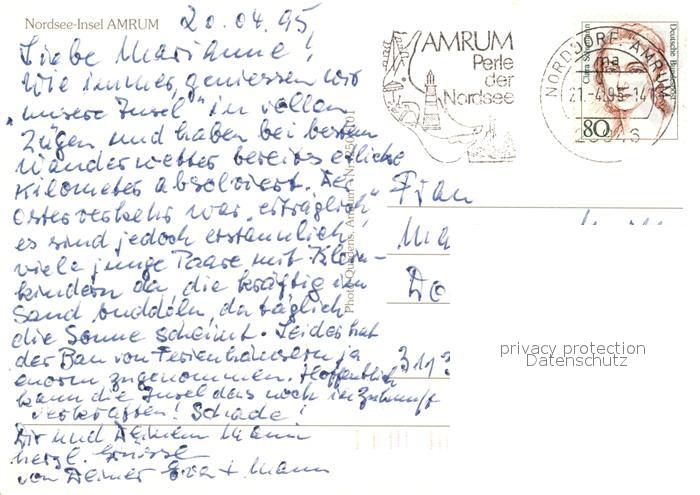 Nordsee-Insel AMRUM
20.04.95
Liebe Marianne!
Wie immer, geniessen wir
"unsere Insel" in vollen
Zügen und haben bei bestem
Wanderwetter bereits etliche
Kilometer absolviert. Der
Osterverkehr war "erträglich"
es sind jedoch erstaunlich
viele junge Paare mit Klein-
kindern da die kräftig im
Sand buddeln, da täglich
die Sonne scheint. Leider hat
der Bau von Ferienhäusern ja
enorm zugenommen. Hoffentlich
kann die Insel das noch in Zukunft
verkraften! Schade!
Dir und Deinem Mann
herzl. Grüsse
von Deiner Eva + Mann
AMRUM
Perle
der
Nordsee
NORDDORF, AMRUM
21.-4.95-14
25946
Deutsche Bundespost
80
Photo Quedens, Amrum
Frau
Ma
Do
313
privacy protection
Datenschutz